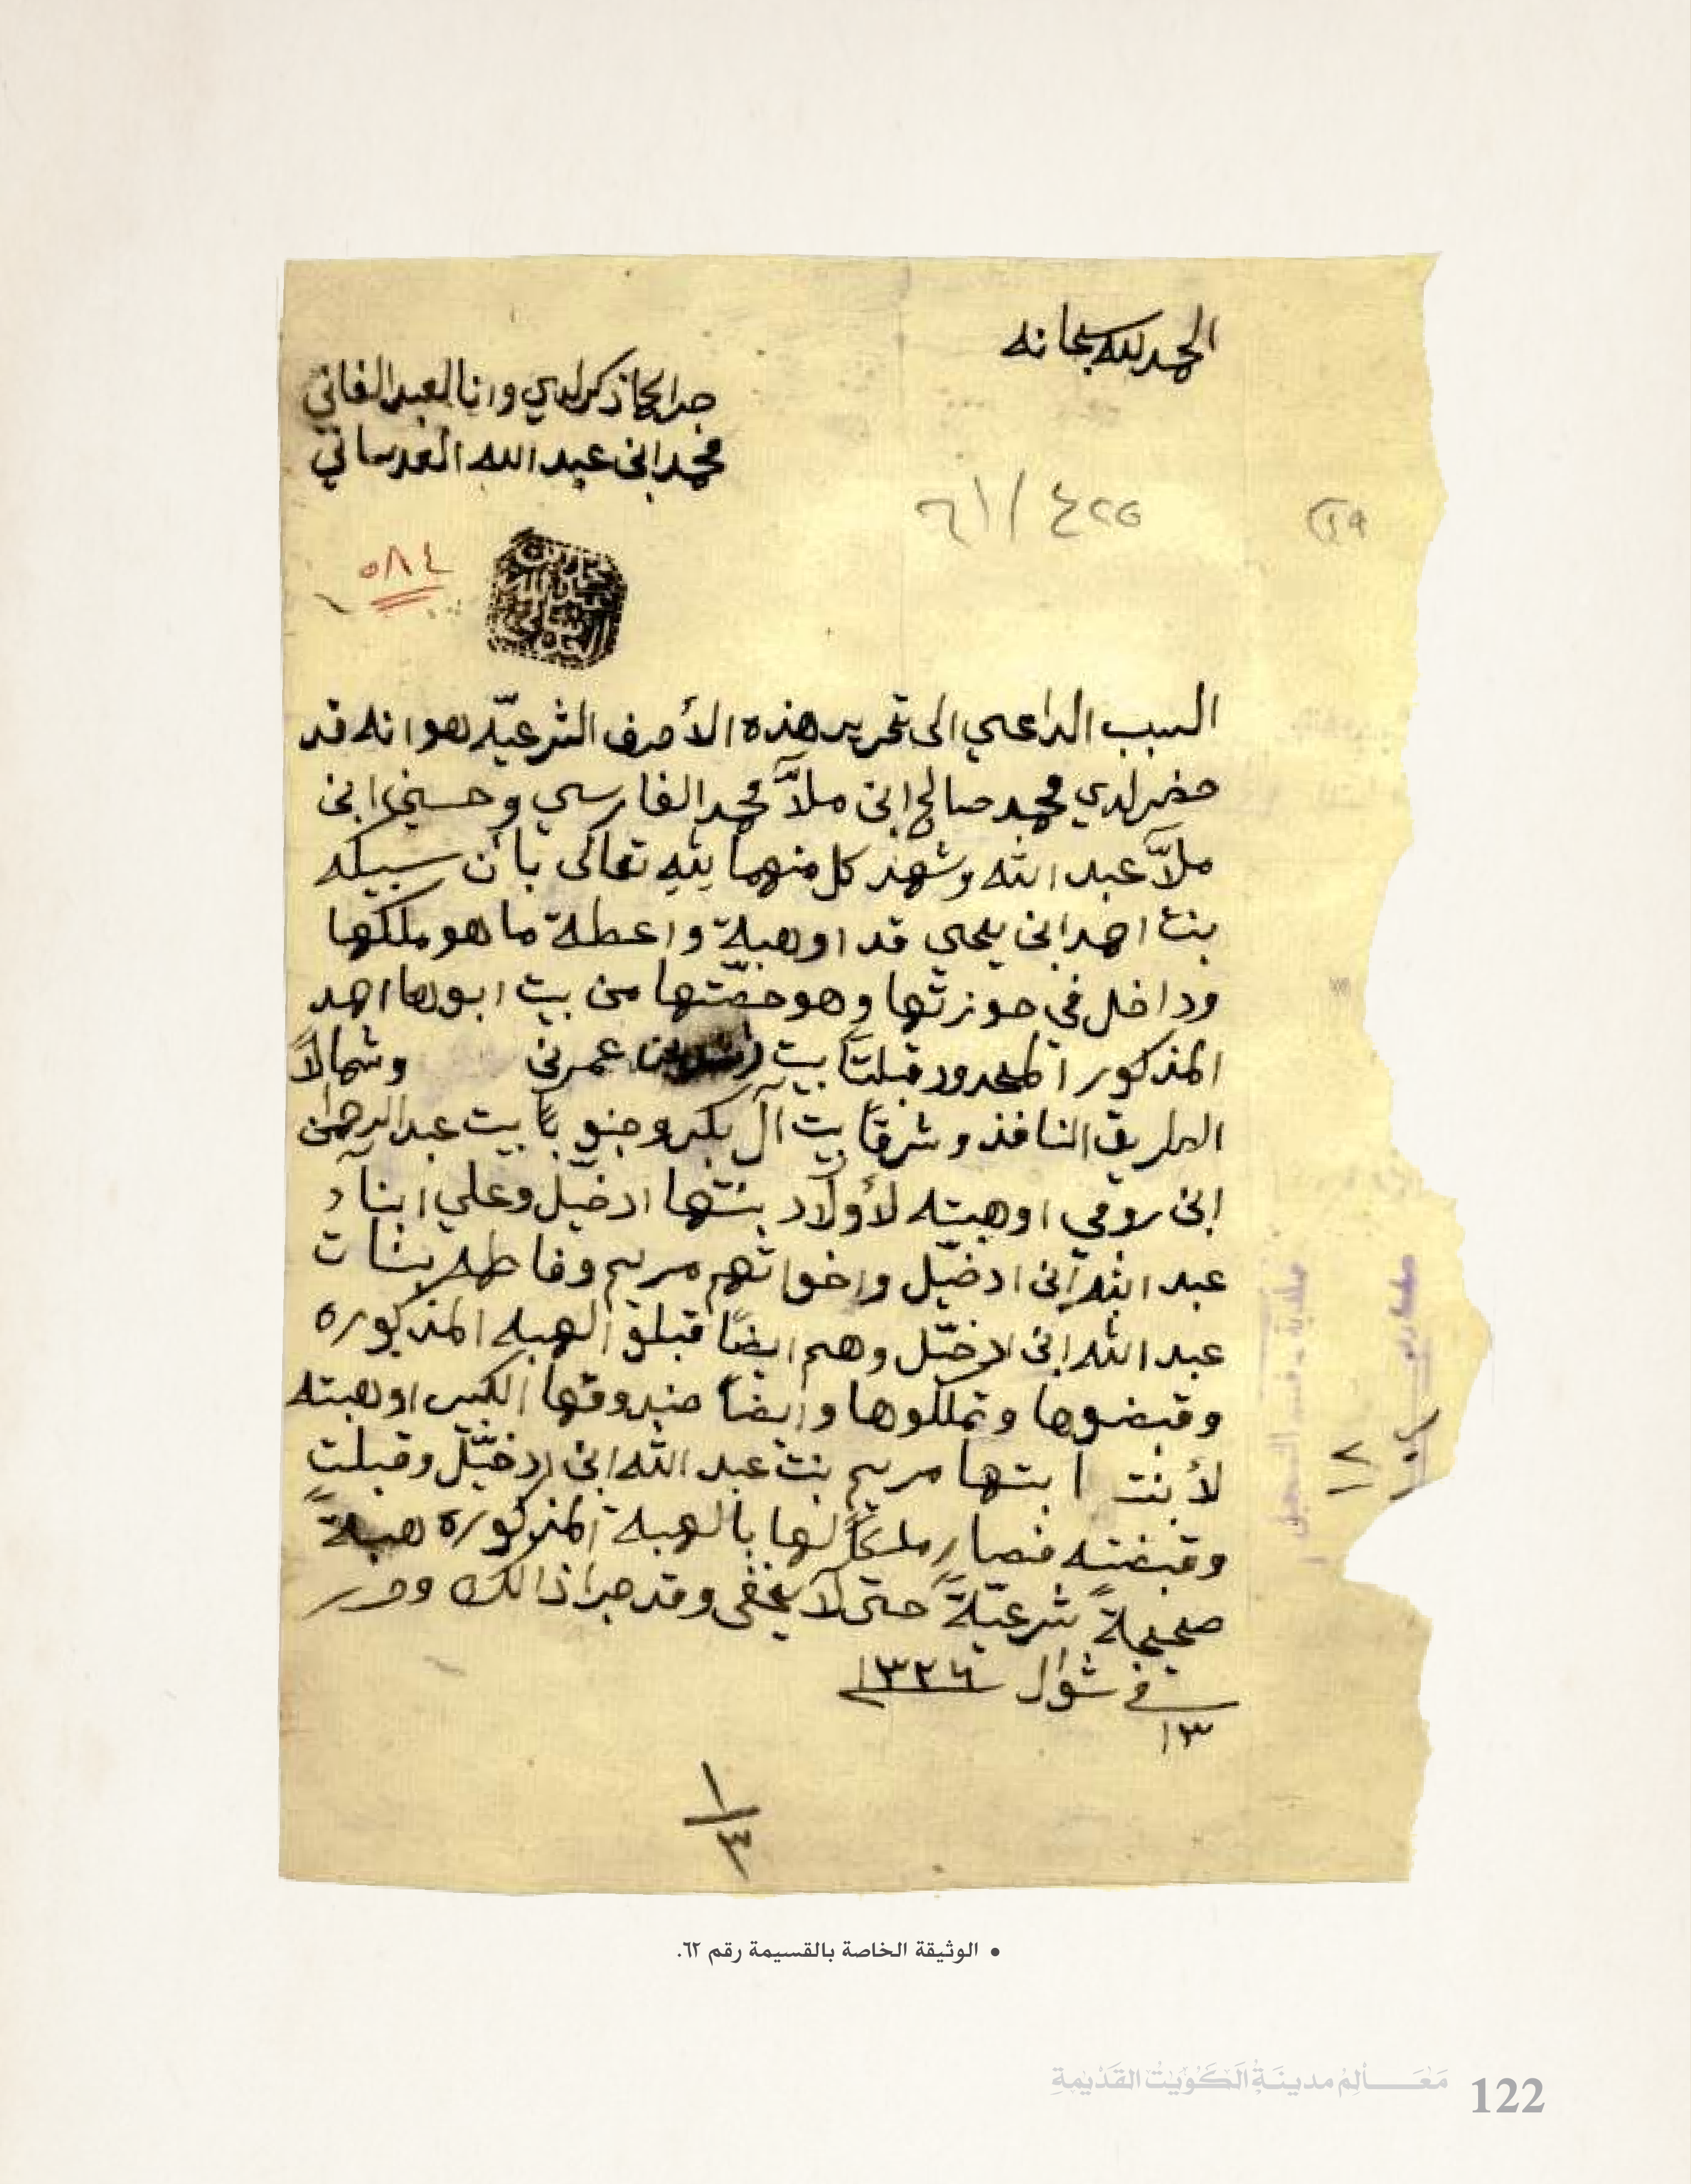 الحمد لله سبحانه
جرا كما ذكر لدي وانا العبد الفاني
محمد ابن عبد الله العدساني
٤٢٥/٦١
٥٨٤
السبب الداعي الى تحرير هذه الأحرف الشرعيّه هو انه قد
حضر لدي محمد صالح ابن ملاّ محمد الفارسي وحسين ابن
ملاّ عبد الله وشهد كل منهما لله تعالى بأن سبيكه
بنت احمد ابن يحي قد اوهبة واعطة ما هو ملكها
وداخل في حوزتها وهو حصّتها من بيت ابوها احمد
المذكور المحدود قبلتاً بيت عمر ني وشمالاً
الطريق النافذ وشرقاً بيت آل بكر وجنوباً بيت عبد الرحمن
ابن رومي اوهبته لأولاد بنتها ادخيّل وعلي ابناء
عبد الله ابن ادخيّل واخواتهم مريم وفاطمه بنات
عبد الله ابن ادخيّل وهم ايضاً قبلو الهبه المذكوره
وقبضوها وتملكوها وايضاً صندوقها الكبير اوهبته
لأبنت ابنتها مريم بنت عبد الله ابن ادخيّل وقبلت
وقبضته فصار ملكاً لها بالهبه المذكوره هبةً
صحيحةً شرعيّةً حتى لا يخفى وقد جرا ذالك وحرر
في ١٣ شوال ١٣٢٦
١
٣
• الوثيقة الخاصة بالقسيمة رقم ٦٢.
مَعَالِمُ مدينَةِ الكُوَيْت القَدْيمةِ
122